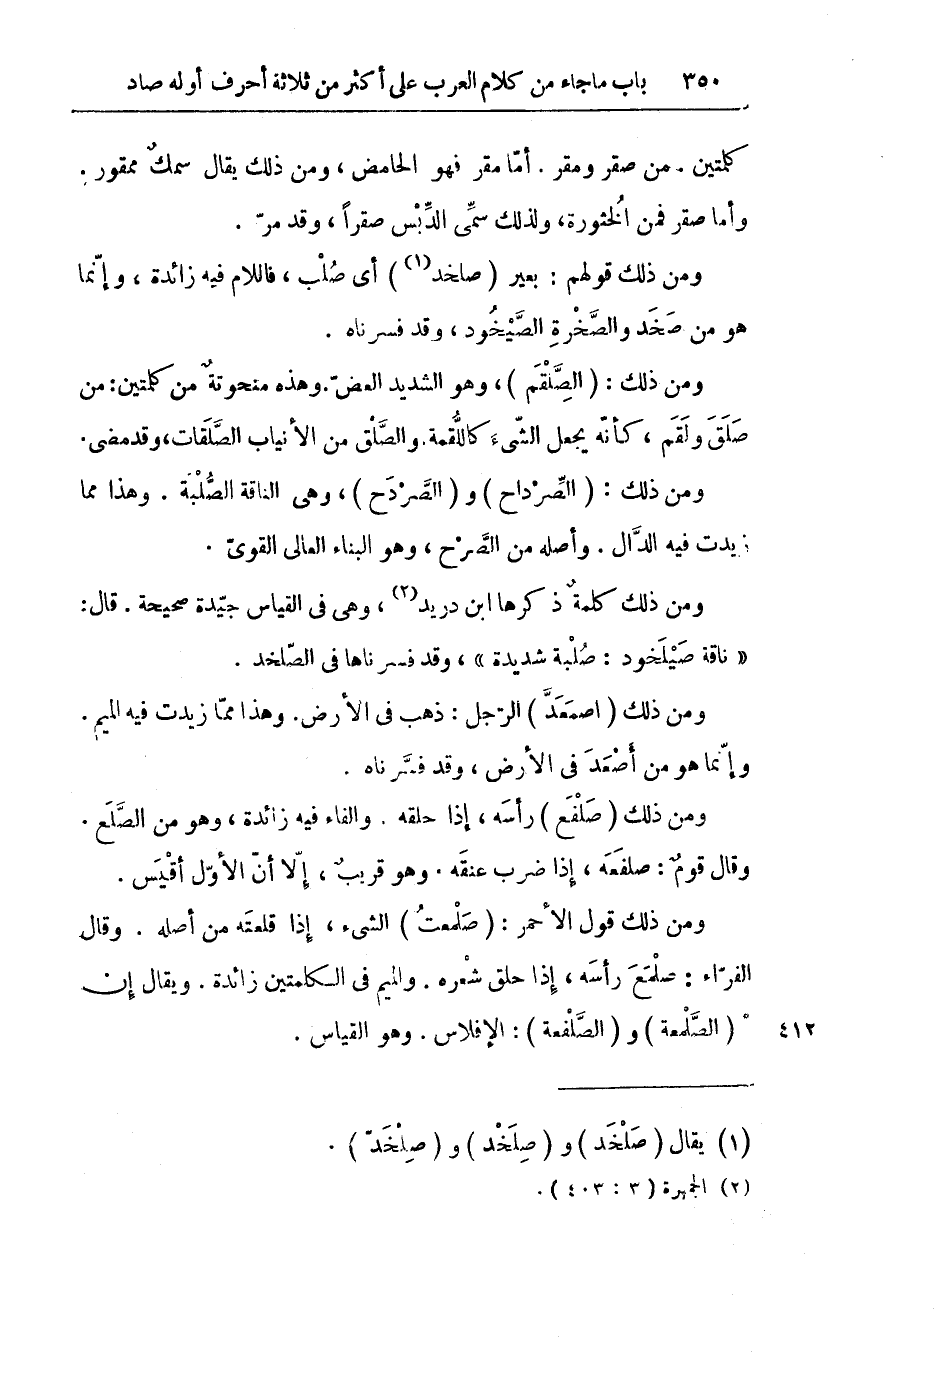 ٣٥٠ باب ماجاء من كلام العرب على أكثر من ثلاثة أحرف أوله صاد
كلمتين . من صقر ومقر . أمّا مقر فهو الحامض ، ومن ذلك يقال سمكٌ ممقور .
وأما صقر فمن الُخثورة، ولذلك سمِّى الدِّبْس صقراً ، وقد مرّ .
ومن ذلك قولهم : بعير ( صلخد(١) ) أى صُلْب ، فاللام فيه زائدة ، وإنّما
هو من صَخَد والصَّخْرةِ الصَّيْخُود ، وقد فسرناه .
ومن ذلك : ( الصِّلْقَم ) ، وهو الشديد العضّ. وهذه منحوتةٌ من كلمتين: من
صَلَقَ ولَقَم ، كأنّه يجعل الشّىءَ كاللُّقمة. والصَّلْق من الأنياب الصَّلَقات، وقدمضى .
ومن ذلك : ( الصِّرْداح ) و ( الصَّرْدَح ) ، وهى الناقة الصُّلْبَة . وهذا مما
زيدت فيه الدَّال . وأصله من الصَّرْح ، وهو البناء العالى القوىّ .
ومن ذلك كلمةٌ ذكرها ابن دريد(٢) ، وهى فى القياس جيّدة صحيحة . قال :
« ناقة صَيْلَخود : صُلْبة شديدة » ، وقد فسرناها فى الصّلخد .
ومن ذلك ( اصمَعَدَّ ) الرّجل : ذهب فى الأرض. وهذا ممّا زيدت فيه الميم .
وإنّما هو من أَصْعَدَ فى الأرض ، وقد فسَّرناه .
ومن ذلك ( صَلْفَع ) رأسَه ، إذا حلقه . والفاء فيه زائدة ، وهو من الصَّلَع .
وقال قومٌ : صلفَعَه ، إذا ضرب عنقَه . وهو قريبٌ ، إلّا أنّ الأوّل أقْيَس .
ومن ذلك قول الأحمر : ( صَلْمعتُ ) الشىء ، إذا قلعتَه من أصله . وقال
الفرّاء : صلْمَعَ رأسَه ، إذا حلق شعْره . والميم فى الكلمتين زائدة . ويقال إن
٤١٢ * ( الصَّلْمعة ) و ( الصَّلْفعة ) : الإفلاس . وهو القياس .
(١) يقال ( صَلْخَد ) و ( صِلَخْد ) و ( صِلْخَدّ ) .
(٢) الجمهرة ( ٣ : ٤٠٣ ) .